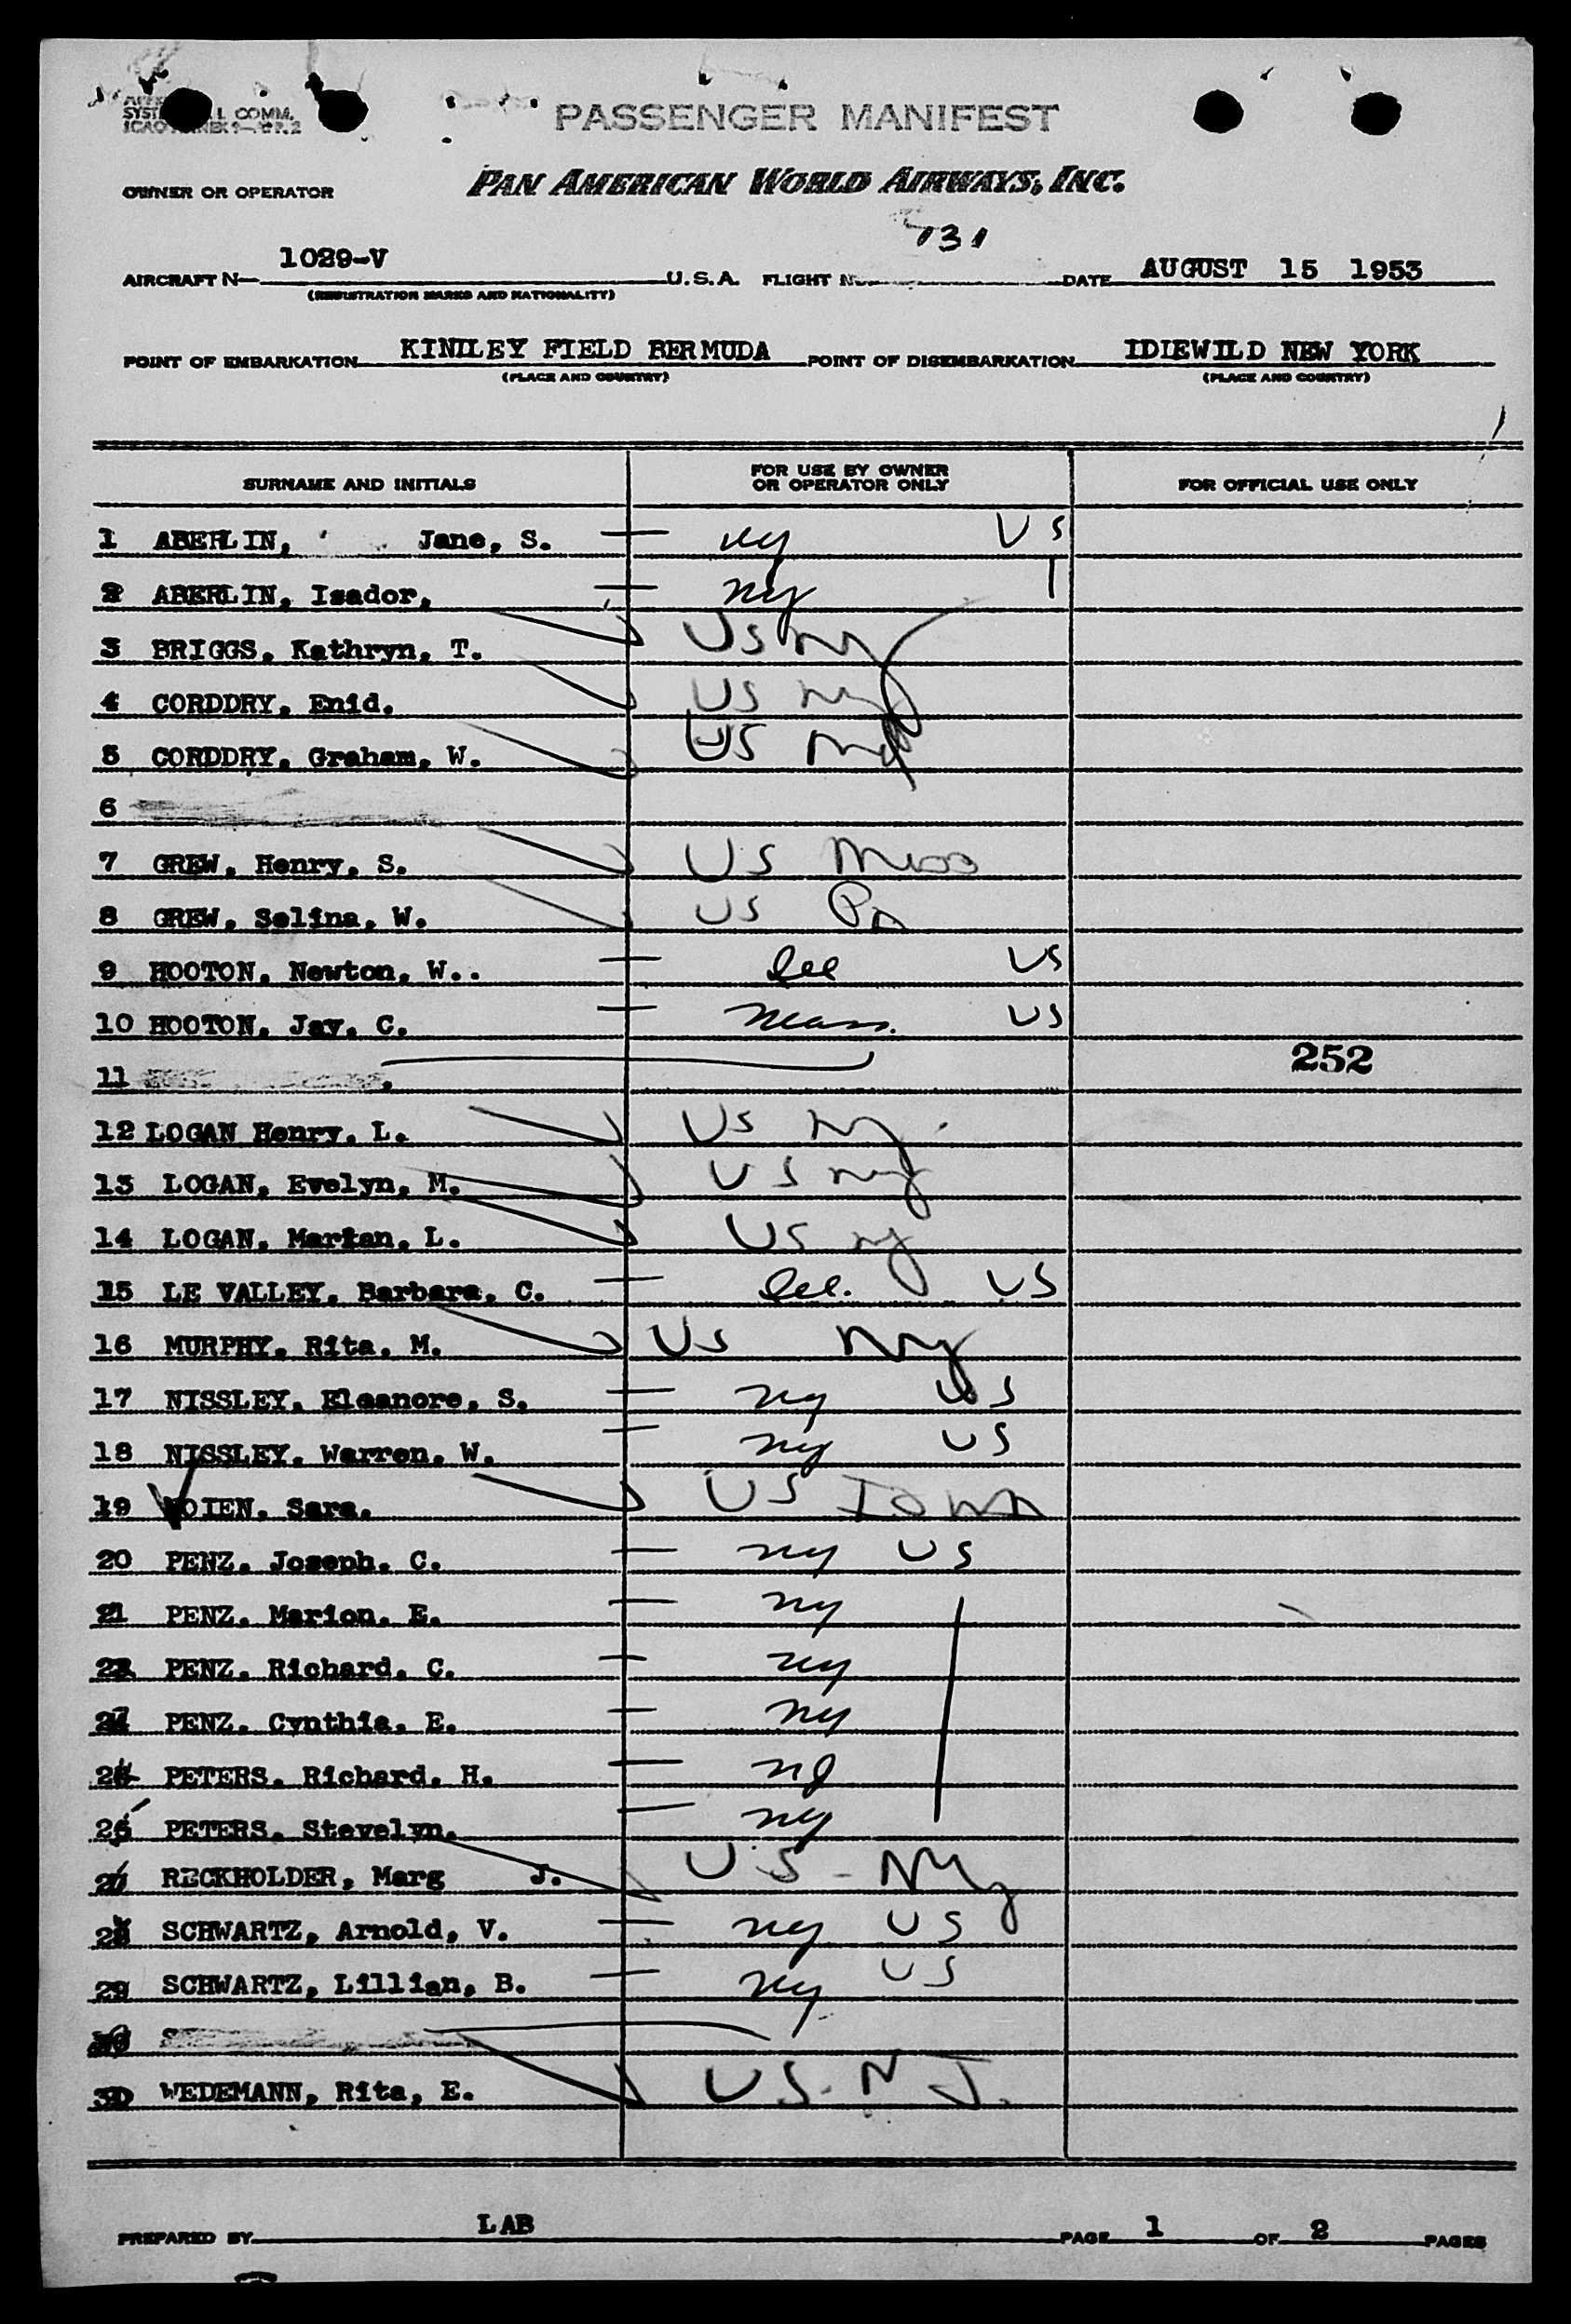 PASSENGER MANIFEST
COMM.
OWNER OR OPERATOR PAN AMERICAN WORLD AIRWAYS, INC.
131
AIRCRAFT N— 1029-V U.S.A. FLIGHT No. DATE AUGUST 15 1953
(REGISTRATION MARKS AND NATIONALITY)
POINT OF EMBARKATION KINDLEY FIELD BERMUDA POINT OF DISEMBARKATION IDIEWILD NEW YORK
(PLACE AND COUNTRY) (PLACE AND COUNTRY)
SURNAME AND INITIALS FOR USE BY OWNER OR OPERATOR ONLY FOR OFFICIAL USE ONLY
1 ABERLIN, Jane, S. ny US
2 ABERLIN, Isador, ny
3 BRIGGS, Kathryn, T. US ny
4 CORDDRY, Enid. US ny
5 CORDDRY, Graham, W. US Md
6
7 GREW, Henry, S. US Mass
8 GREW, Selina, W. US Pa
9 HOOTON, Newton, W.. US
10 HOOTON, Jay, C. Mass. US
252
11
12 LOGAN Henry, L. US ny
13 LOGAN, Evelyn, M. US ny
14 LOGAN, Marian, L. US ny
15 LE VALLEY, Barbara, C. US
16 MURPHY, Rita, M. US Ny
17 NISSLEY, Eleanore, S. ny US
18 NISSLEY, Warren, W. ny US
19 VOIEN, Sara. US Iowa
20 PENZ, Joseph, C. ny US
21 PENZ, Marion, E. ny
22 PENZ, Richard, C. ny
PENZ, Cynthia, E. ny
PETERS, Richard, H. ny
25 PETERS, Stevelyn. ny
RECKHOLDER, Marg J. US - NY
SCHWARTZ, Arnold, V. ny US
29 SCHWARTZ, Lillian, B. ny US
WEDEMANN, Rita, E. US. N J.
PREPARED BY LAB PAGE 1 OF 2 PAGES